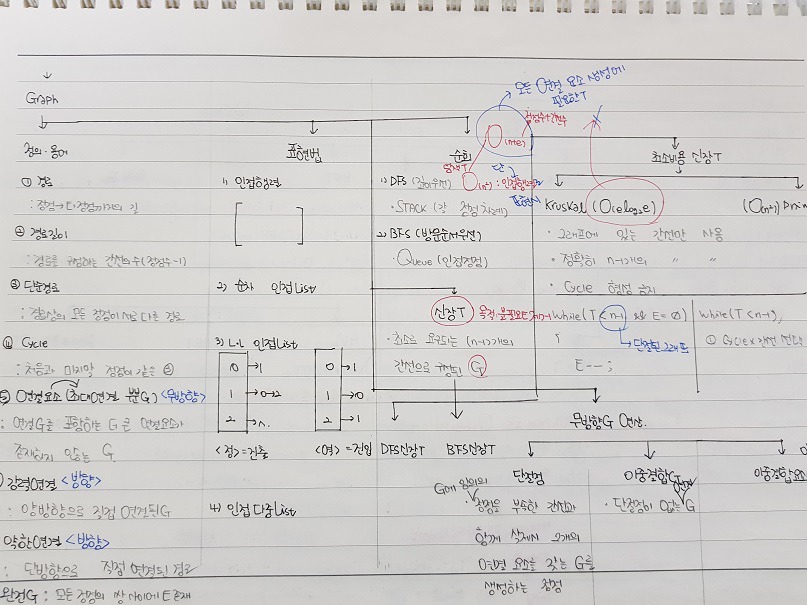 Graph
정의·용어
① 경로
: 정점→다정점까지의 길
② 경로길이
: 경로를 구성하는 간선의수(정점수-1)
③ 단순경로
: 경로상의 모든 정점이 서로 다른 경로
④ Cycle
: 처음과 마지막 정점이 같은 ③
⑤ 연결요소 (최대연결 부분G) <무방향>
: 연결G를 포함하는 G 큰 연결요소가
존재하지 않는 G.
강력연결 <방향>
: 양방향으로 직접 연결된G
약한연결 <방향>
: 단방향으로 직접 연결된 경로
완전G : 모든 정점의 쌍 사이에 E 존재
표현법
1) 인접행렬
2) 순차 인접List
3) L·L 인접List
0 →1
1 →0→2
2 →1.
<정>=진출
0 →1
1 →0
2 →1
<역>=진입
4) 인접 다중List
순회
모든 연결 요소 생성에
필요한T
O(n+e)
정점수+간선수
1) DFS (깊이우선) O(n²) : 인접행렬로
표현시
·STACK (각 정점
2) BFS (방문순서우선)
·Queue (인접정점)
신장T
·최소로 요구되는 (n-1)개의
간선으로 구성된 G
DFS신장T BFS신장T
최소비용 신장T
Kruskal (O(elog₂e)
· 그래프에 있는 간선만 사용
· 정확히 n-1개의 〃 〃
· Cycle 형성 금지
while(T<n-1 && E≠∅)
{
→단절된그래프
E--;
(O(n²)) Prim
while(T<n-1),
① Cycle× 간선 선택
무방향G 연산.
단절점
G에 임의의
·정점을 부속한 간선과
함께 삭제시 2개의
연결 요소를 갖는 G를
생성하는 정점
이중결합G
연결
· 단절점이 없는 G
이중결합요소